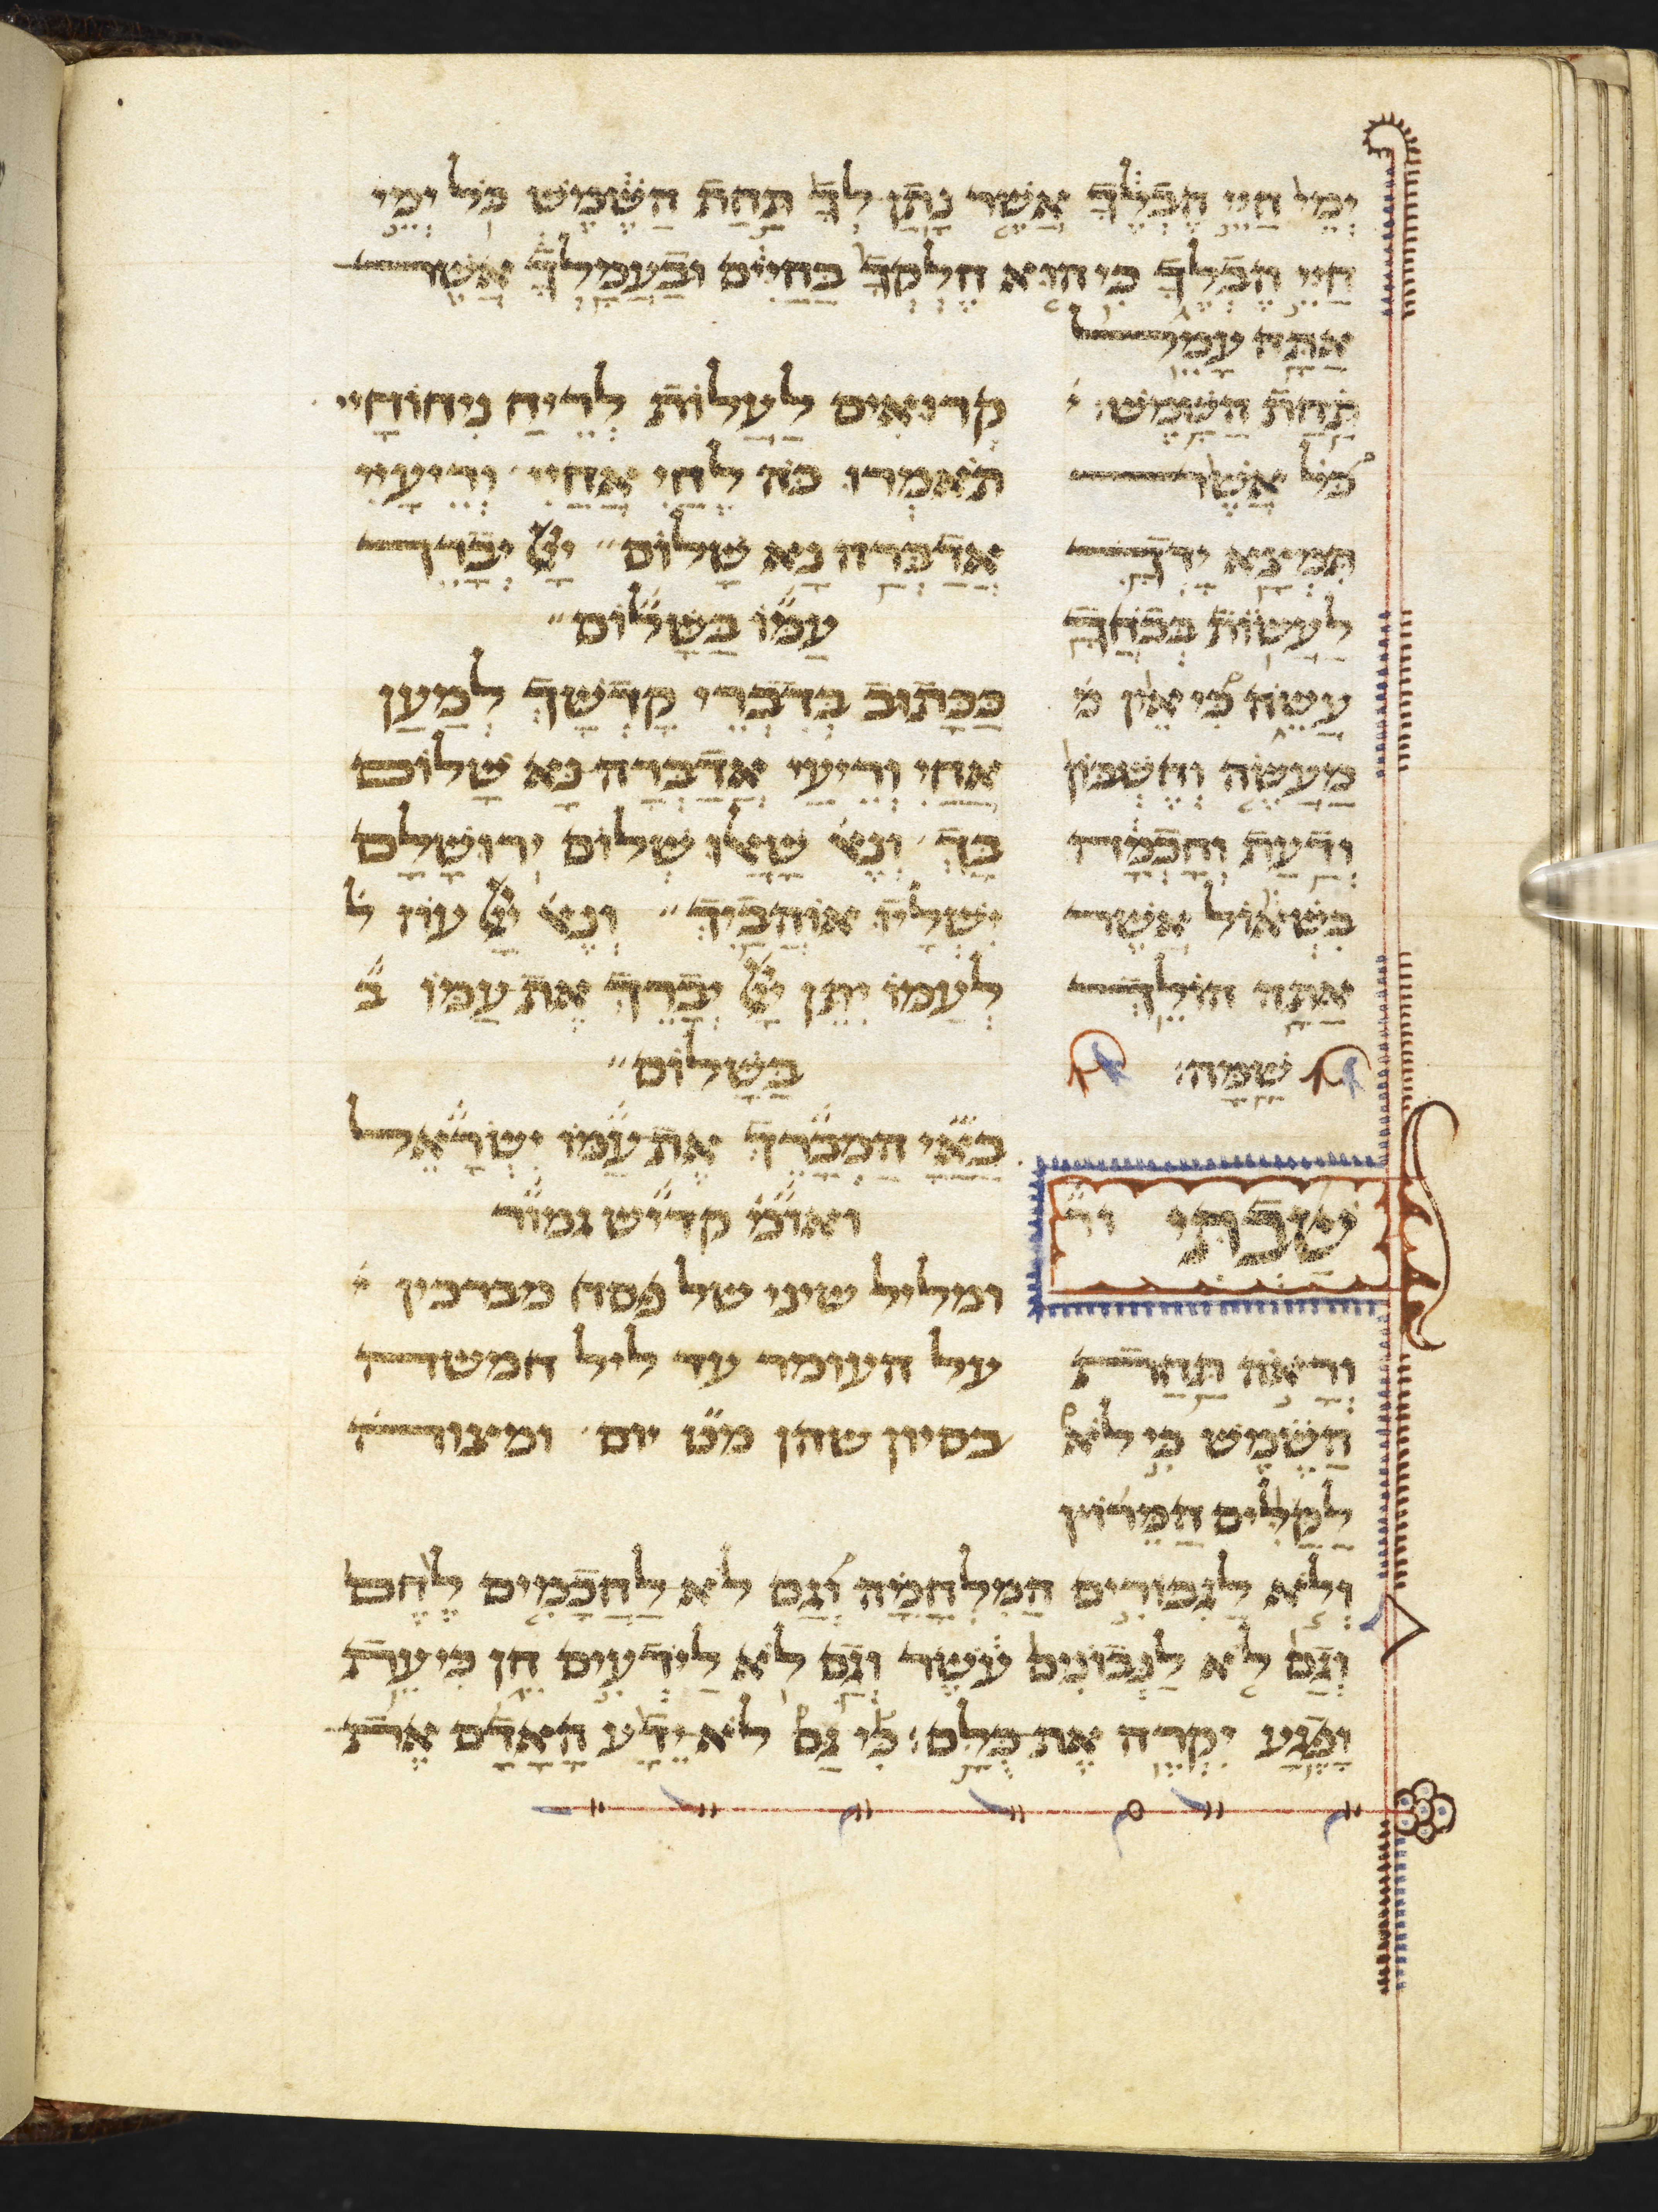 ימי חיי הבלך אשר נתן לך תחת השמש כל ימי
חיי הבלך כי הוא חלקך בחיים ובעמלך אשר
אתה עמל
תחת השמש:
כל אשר
תמצא ידך
לעשות בכחך
עשה כי אין מ
מעשה וחשבון
ודעת וחכמה
בשאול אשר
אתה הולך
שמה:
שבתי ור
וראה תחת
השמש כי לא
לקלים המרוץ
ולא לגבורים המלחמה וגם לא לחכמים לחם
וגם לא לנבונים עשר וגם לא לידעים חן כי עת
ופגע יקרה את כלם: כי גם לא ידע האדם את
קרואים לעלות לריח ניחוחיי
תאמרו כה לחי אחיי וריעיי
אדברה נא שלום״ יי יברך
עמ״ו בשל״ום״
ככתוב בדברי קדשך למען
אחי וריעי אדברה נא שלום
בך׳ ונא׳ שאלו שלום ירושלם
ישליו אוהביך״ ונא׳ יי עוז ל
לעמו יתן יי יברך את עמו ב
בשלום״
בא״י המברך את עמו ישראל
ואומ׳ קדיש גמור
ומליל שיני של פסח מברכין
על העומר עד ליל חמשה
בסיון שהן מ״ט יום׳ ומצוה